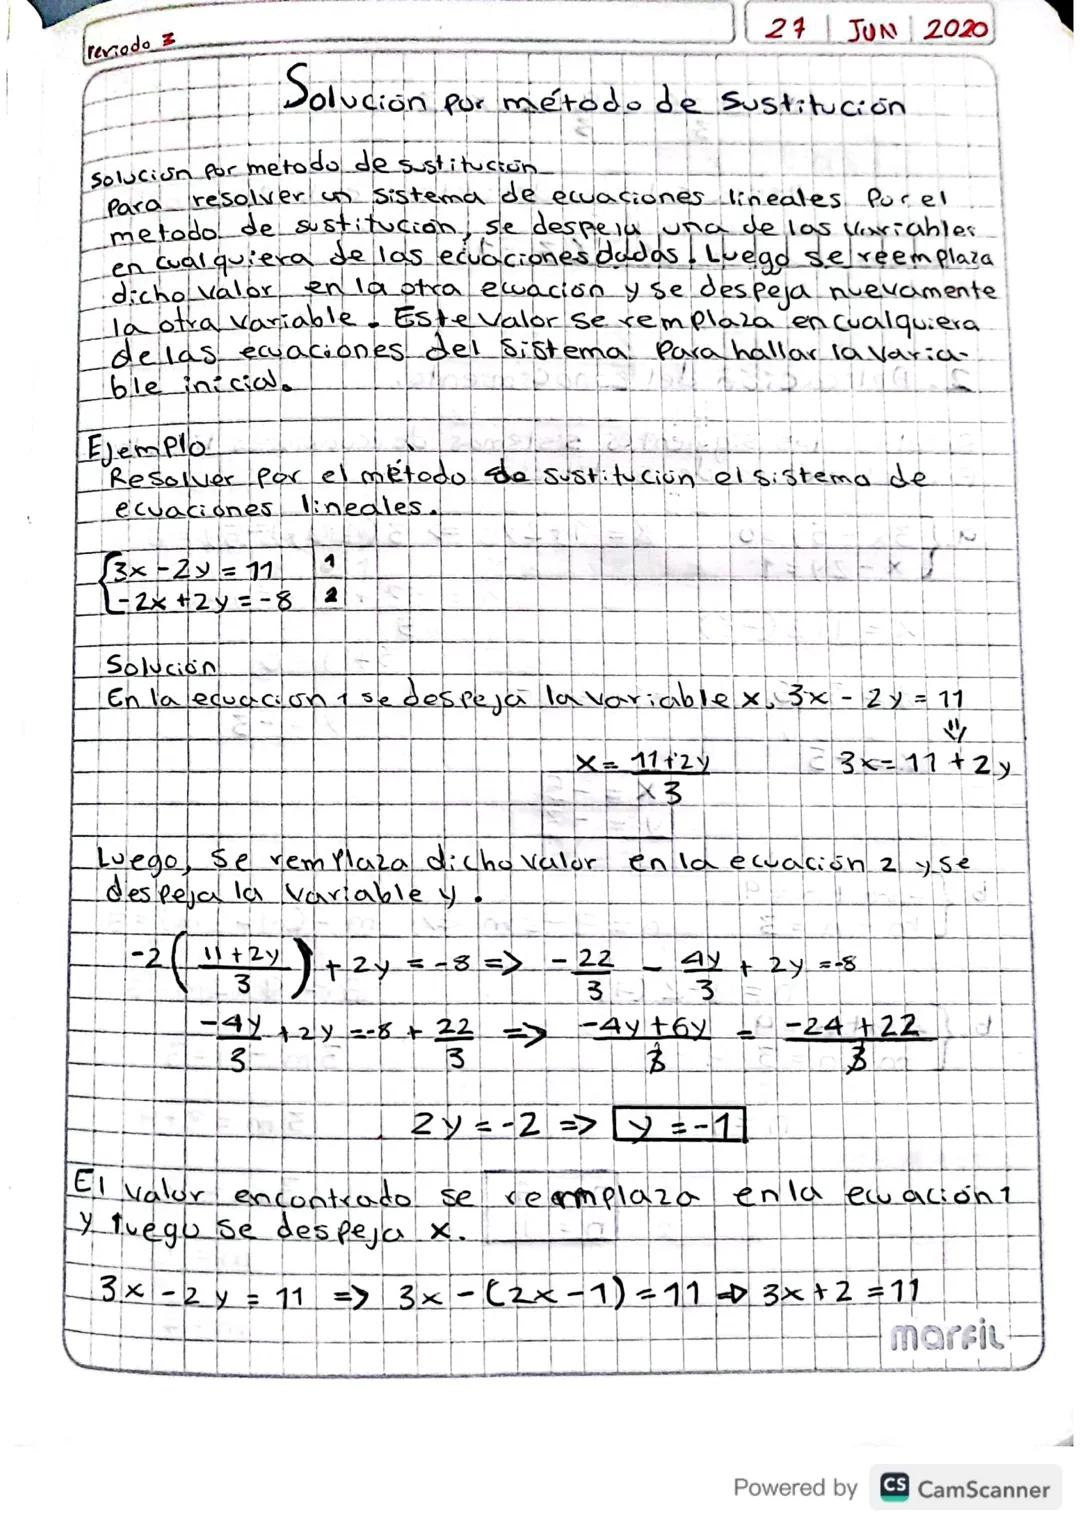 Periodo 3
27 | JUN | 2020
Solución por método de sustitución
Solución por metodo de sustitución
Para resolver un sistema de ecuaciones lineales por el
metodo de sustitución, se despeja una de las variables
en cualquiera de las ecuaciones dadas. Luego se reemplaza
dicho valor en la otra ecuación y se despeja nuevamente
la otra variable. Este valor se remplaza en cualquiera
de las ecuaciones del sistema para hallar la varia-
ble inicial.
Ejemplo
Resolver por el método de sustitución el sistema de
ecuaciones lineales.
3x - 2y = 11 1
-2x + 2y = -8 2
Solución
En la ecuacion 1 se despeja la variable x. 3x - 2y = 11
⇓
x = 11+2y / 3 3x = 11 + 2y
Luego, se remplaza dicho valor en la ecuación 2 y se
despeja la variable y.
-2 ( 11+2y / 3 ) + 2y = -8 => - 22/3 - 4y/3 + 2y = -8
-4y/3 + 2y = -8 + 22/3 => -4y+6y / 3 = -24+22 / 3
2y = -2 => y = -1
El valor encontrado se reemplaza en la ecuación 1
y luego se despeja x.
3x - 2y = 11 => 3x - (2x-1) = 11 ⇒ 3x + 2 = 11
marfil
Powered by CS CamScanner